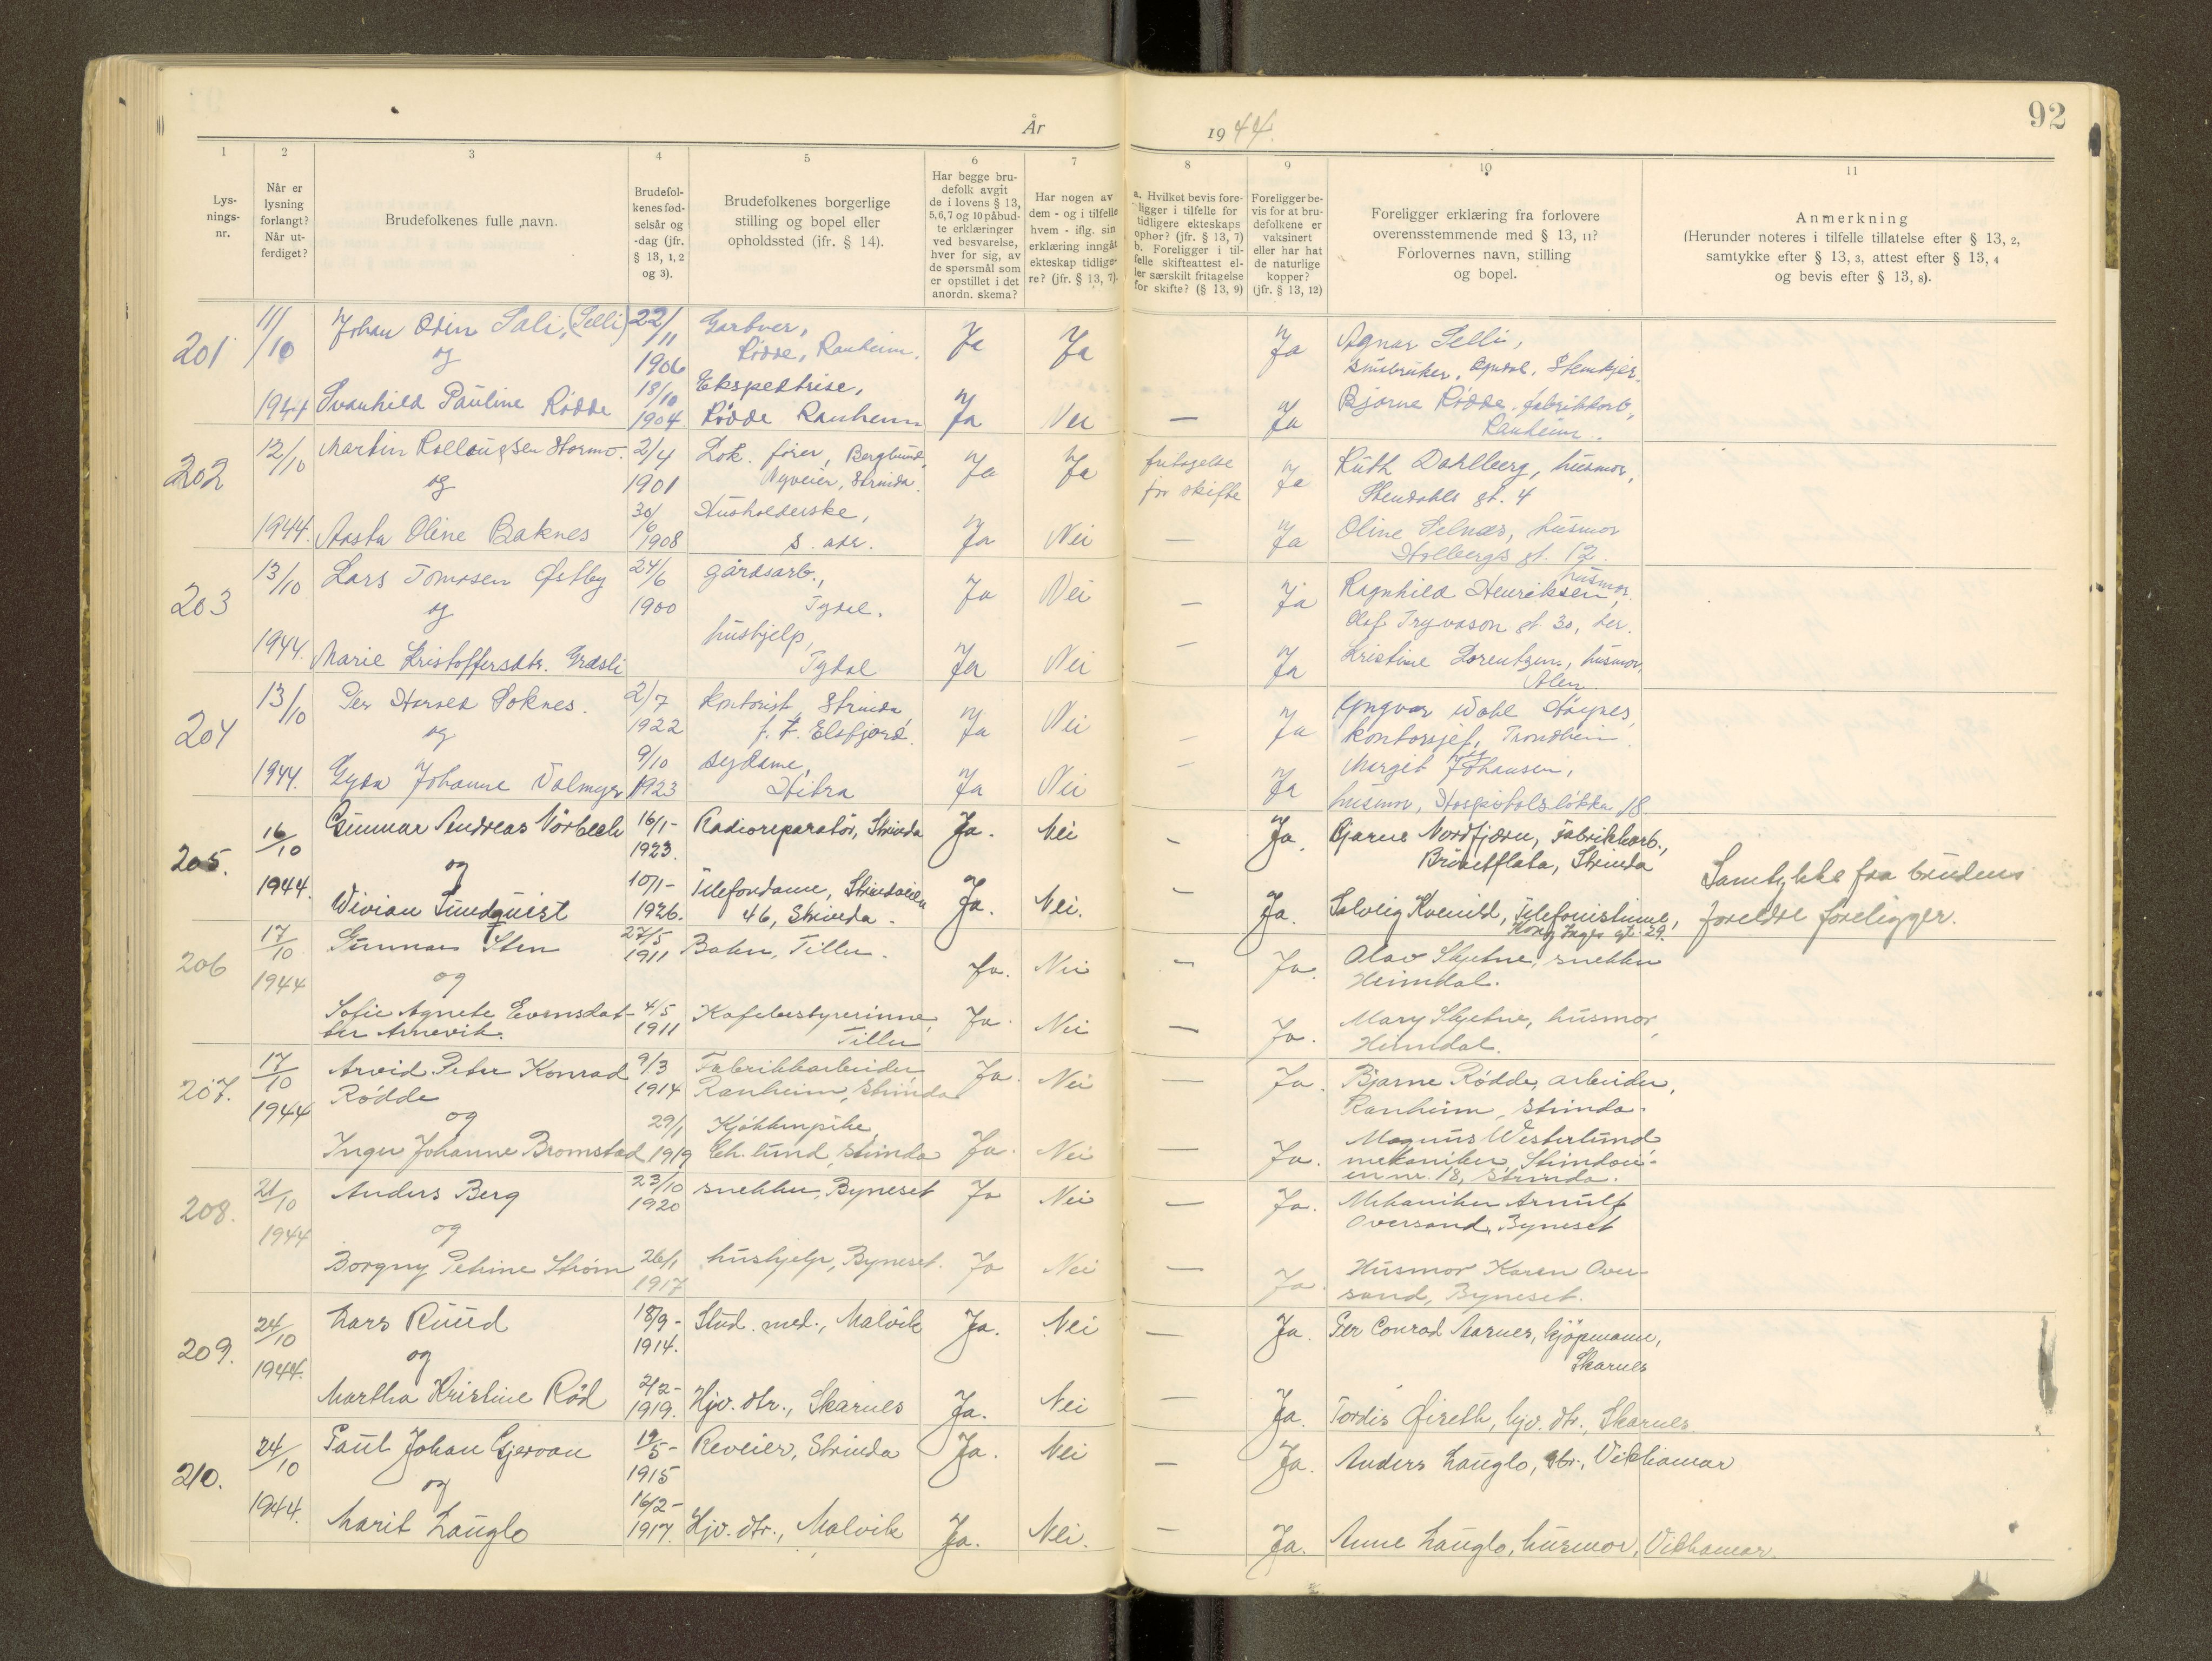 92
År 1944.
1 2 3 4 5 6 7 8 9 10 11
Lysningsnr.
Når er lysning forlangt? Når utferdiget?
Brudefolkenes fulle navn.
Brudefolkenes fødselsår og -dag (jfr. § 13, 1, 2 og 3).
Brudefolkenes borgerlige stilling og bopel eller opholdssted (ifr. § 14).
Har begge brudefolk avgit de i lovens § 13, 5, 6, 7 og 10 påbudte erklæringer ved besvarelse, hver for sig, av de spørsmål som er opstillet i det anordn. skema?
Har nogen av dem - og i tilfelle hvem - iflg. sin erklæring inngått ekteskap tidligere? (jfr. § 13, 7).
a. Hvilket bevis foreligger i tilfelle for tidligere ekteskaps ophør? (jfr. § 13, 7)
b. Foreligger i tilfelle skifteattest eller særskilt fritagelse for skifte? (§ 13, 9)
Foreligger bevis for at brudefolkene er vaksinert eller har hat de naturlige kopper? (jfr. § 13, 12)
Foreligger erklæring fra forlovere overensstemmende med § 13, 11? Forlovernes navn, stilling og bopel.
Anmerkning
(Herunder noteres i tilfelle tillatelse efter § 13, 2, samtykke efter § 13, 3, attest efter § 13, 4 og bevis efter § 13, 8).
201 11/10 Johan Odin Sali, (Selli) 22/11 1906 Gartner, Rødde, Ranheim. Ja Ja Ja Agnar Selli, småbruker, Ogndal, Stenkjer.
og
1944 Svanhild Pauline Rødde 18/10 1904 Ekspeditrise, Rødde Ranheim Ja Nei — Ja Bjarne Rødde, fabrikkarb, Ranheim.
202 12/10 Martin Rollougsen Stormo. 2/4 1901 Lok. fører, Berglund, Nyveien, Strinda. Ja Ja fritagelse for skifte Ja Ruth Dahlberg, husmor, Stendahls gt. 4
og
1944. Aasta Oline Baknes 30/6 1908 Husholderske, s. adr. Ja Nei — Ja Oline Selnæs, husmor Holbergs gt. 12.
203 13/10 Lars Tomasen Østby 24/6 1900 gårdsarb., Tydal. Ja Nei — Ja Ragnhild Henriksen, husmor. Olaf Trygvason gt. 30, her.
og
1944. Marie Kristoffersdtr. Græsli hushjelp, Tydal Ja Nei — Ja Kristine Lorentzen, husmor, Ålen.
204 13/10 Per Harald Soknes. 2/7 1922 Kontorist, Strinda f. t. Elsfjord. Ja Nei — Ja Yngvar Wahl Høynes, kontorsjef, Trondheim.
og
1944. Gyda Johanne Volmyr 9/10 1923 sydame, Hitra Ja Nei — Ja Margit Johansen, husmor, Hospitalsløkka 18.
205. 16/10 Gunnar Andreas Norbech 16/1- 1923. Radioreparatør, Strinda Ja. Nei — Ja. Bjarne Nordfjærn, Fabrikkarb., Brøsetflata, Strinda
og
1944. Wivian Sundquist 10/1- 1926. Telefondame, Strindveien 46, Strinda. Ja. Nei. — Ja. Solveig Kvenild, Telefonistinne, Kong Inges gt. 29. Samtykke fra brudens foreldre foreligger.
206 17/10 Gunnar Sten 27/5 1911 Baker, Tiller. Ja. Nei — Ja. Olav Skjetne, snekker Heimdal.
1944 og
Sofie Agnete Evensdatter Arnevik. 4/5 1911 Kafebestyrerinne, Tiller Ja. Nei — Ja. Mary Skjetne, husmor, Heimdal.
207. 17/10 Arvid Peter Konrad Rødde 9/3 1914 Fabrikkarbeider Ranheim, Strinda Ja. Nei — Ja. Bjarne Rødde, arbeider, Ranheim, Strinda.
1944 og
Inger Johanne Bromstad 29/1 1919 Kjøkkenpike, Ch. lund, Strinda Ja. Nei — Ja. Magnus Westerlund mekaniker, Strindveien nr. 18, Strinda.
208. 21/10 Anders Berg 23/10 1920 snekker, Byneset Ja Nei — Ja. Mekaniker Arnulf Oversand, Byneset
1944 og
Borgny Petrine Strøm 26/1 1917 hushjelp, Byneset. Ja Nei — Ja. Husmor Karen Oversand, Byneset.
209. 24/10 Lars Ruud 18/9- 1914. Stud. med., Malvik Ja. Nei — Ja. Per Conrad Aarnes, kjøpmann, Skarnes
1944. og
Martha Kristine Rød 2/2- 1919. Hjv. dtr., Skarnes Ja. Nei — Ja. Tordis Øireth, hjv. dtr., Skarnes
210. 24/10 Paul Johan Gjervan 19/5- 1915 Reveier, Strinda Ja. Nei — Ja. Anders Lauglo, gbr., Vikhamar
1944. og
Marit Lauglo 16/2- 1917. Hjv. dtr., Malvik Ja. Nei. — Ja. Anne Lauglo, husmor, Vikhamar.